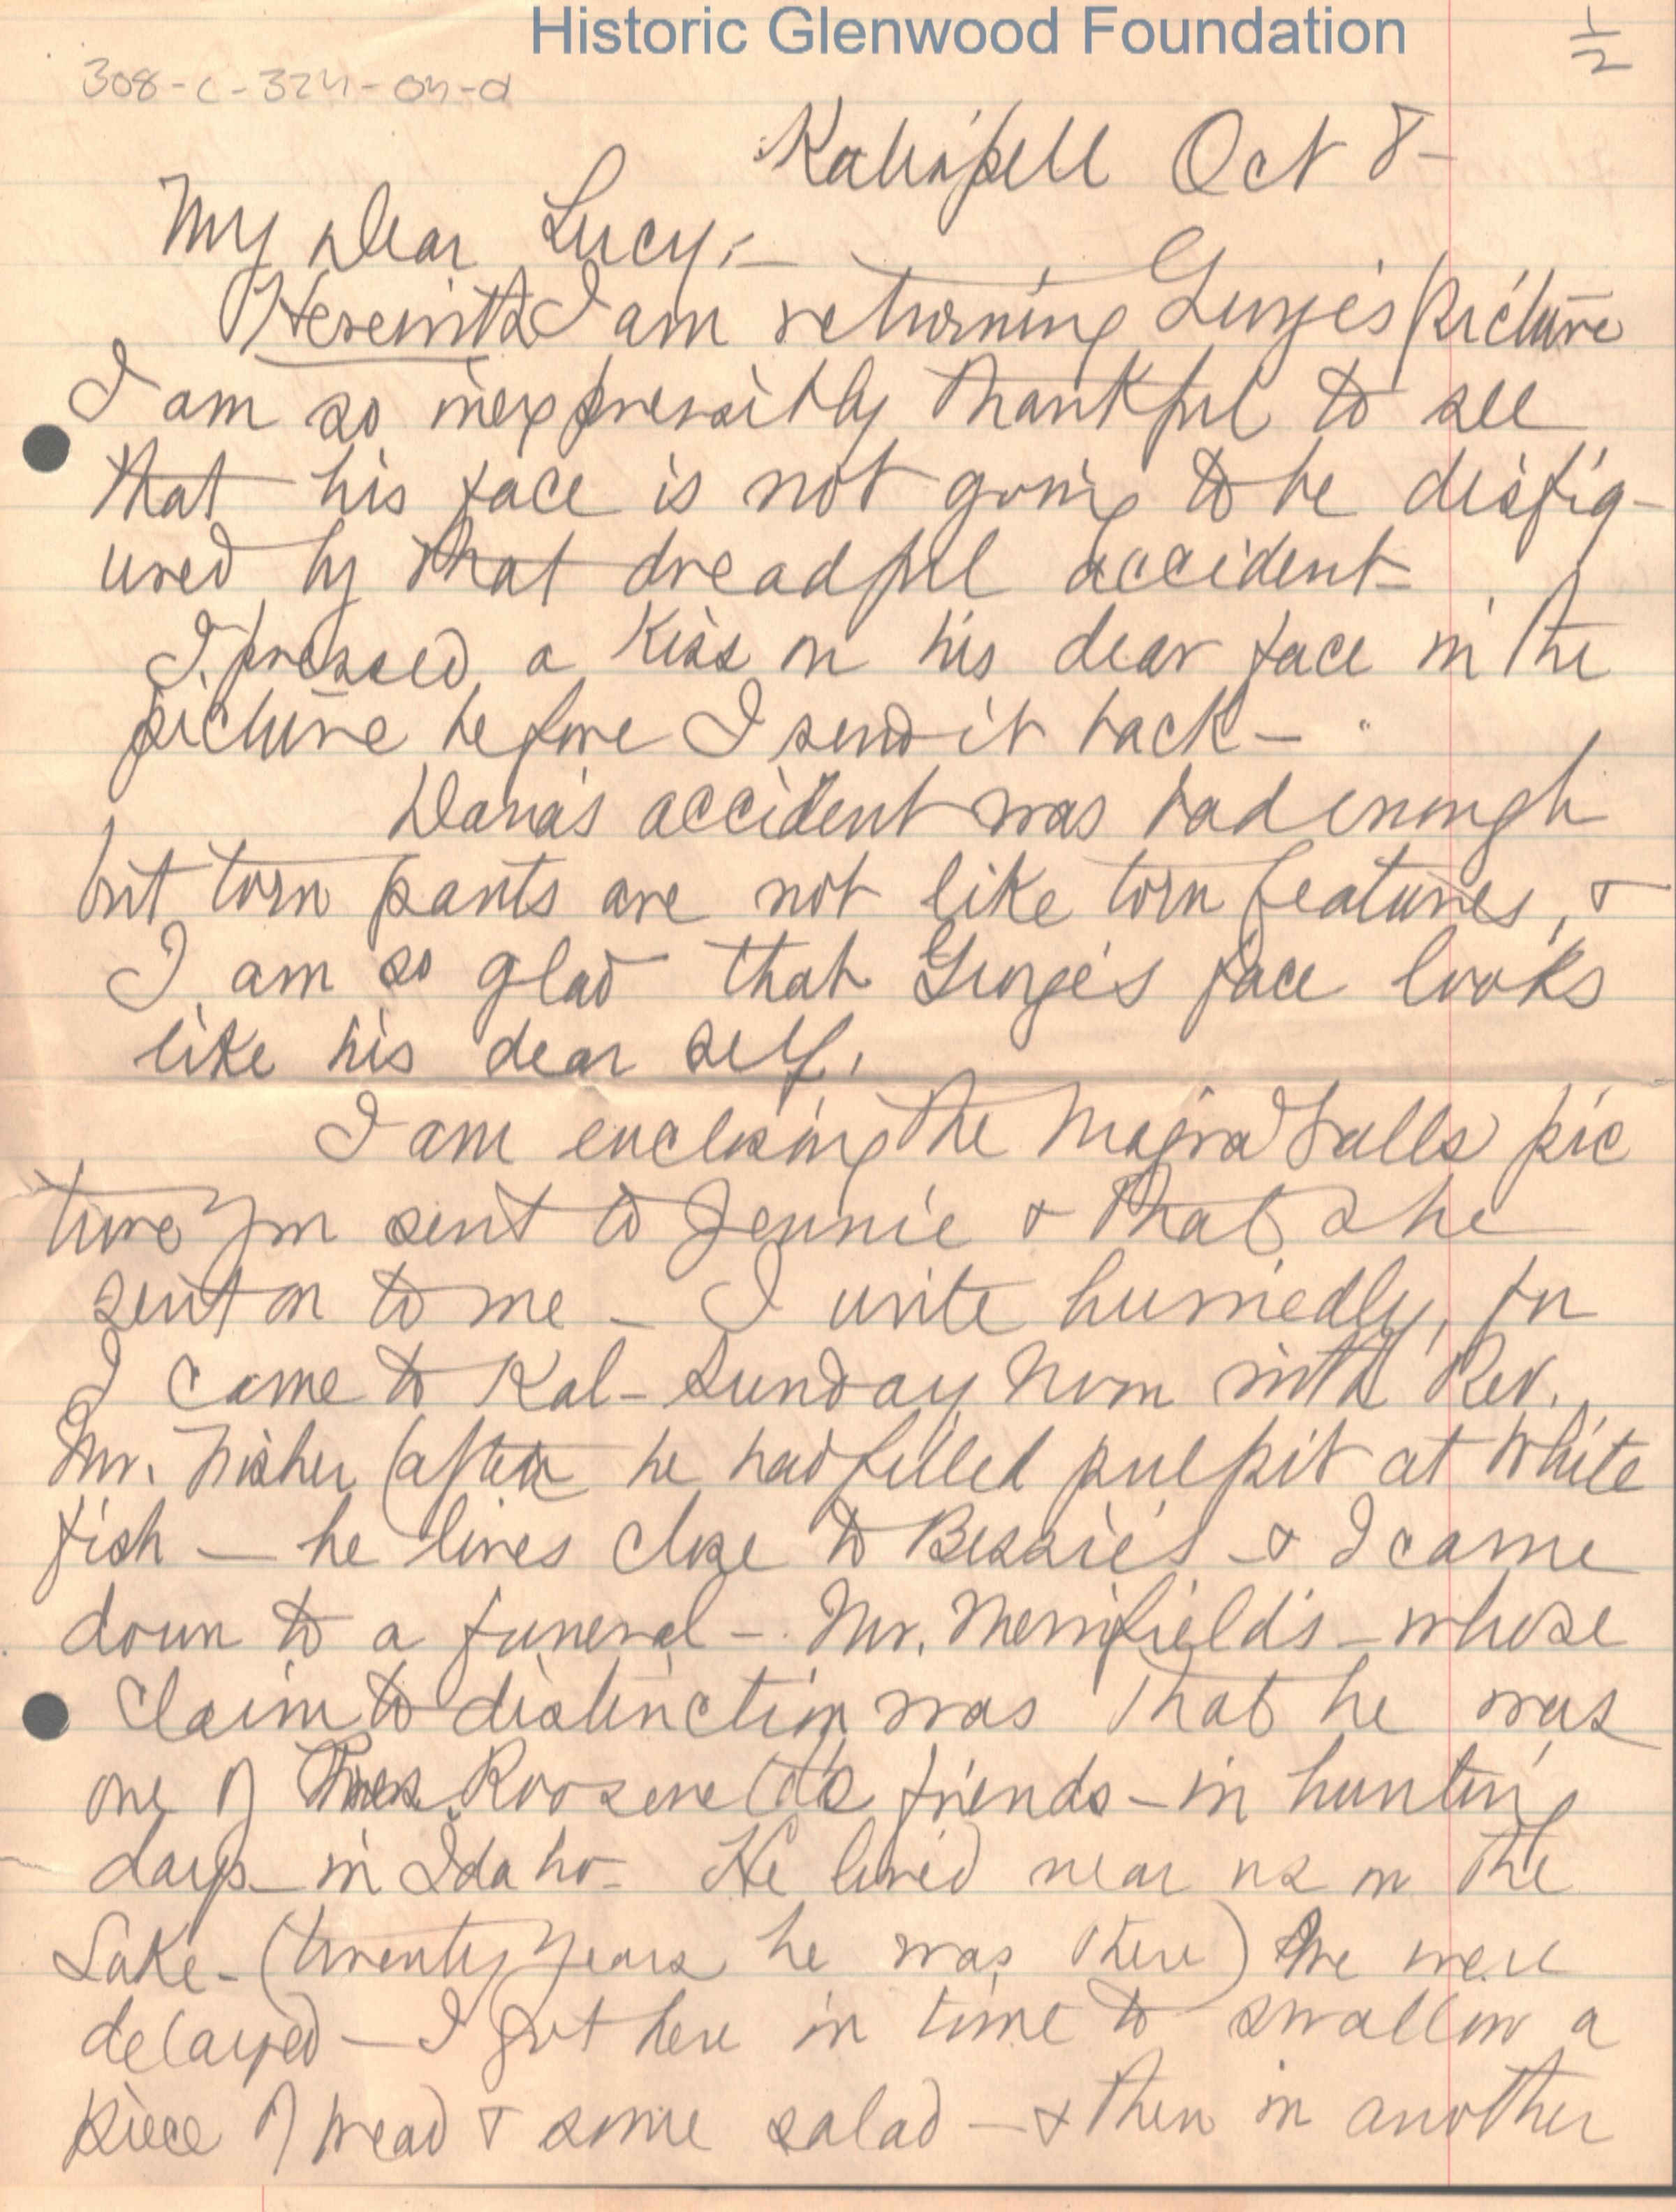 Historic Glenwood Foundation
1/2
308-C-324-04-a
Kalispell Oct 8-
My Dear Lucy,-
Herewith I am returning George's picture
I am so inexpressibly thankful to see
that his face is not going to be disfig-
ured by that dreadful accident-
I pressed a kiss on his dear face in the
picture before I send it back-
Dana's accident was bad enough
but torn pants are not like torn features, &
I am so glad that George's face looks
like his dear self.
I am enclosing the Niagra Falls pic
ture you sent to Jennie & that she
sent on to me - I write hurriedly, for
I came to Kal- Sunday noon with Rev.
Mr. Fisher (after he had filled pulpit at White
fish - he lives close to Bessie's - & I came
down to a funeral - Mr. Merrifield's - whose
claim to distinction was that he was
one of Pres. Roosevelt's friends - in hunting
days - in Idaho - He lived near us on the
Lake - (twenty years he was there) We were
delayed - I got here in time to swallow a
piece of bread & some salad - & then in another